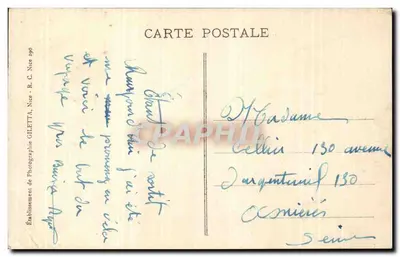 CARTE POSTALE
Établissement de Photographie GILETTA, Nice - R. C. Nice 298
Étant de sortie
Aujourd'hui j'ai été
me promener
et voici le but du
voyage gros
Madame
130 avenue
d'argenteuil 130
Asnières
Seine